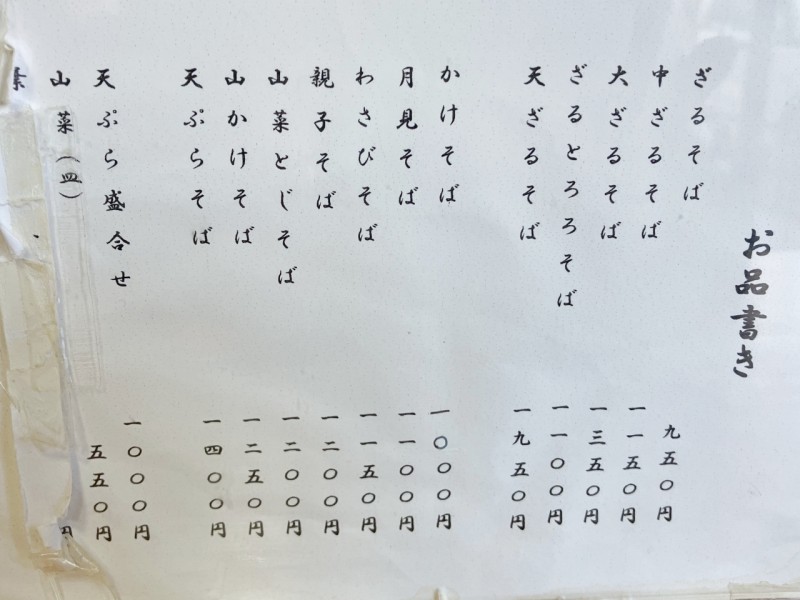 お品書き
ざるそば 九五〇円
中ざるそば 一一五〇円
大ざるそば 一三五〇円
ざるとろろそば 一一〇〇円
天ざるそば 一九五〇円
かけそば 一〇〇〇円
月見そば 一一〇〇円
わさびそば 一一五〇円
親子そば 一二〇〇円
山菜とじそば 一二〇〇円
山かけそば 一二五〇円
天ぷらそば 一四〇〇円
天ぷら盛合せ 一〇〇〇円
山菜(皿) 五五〇円
円